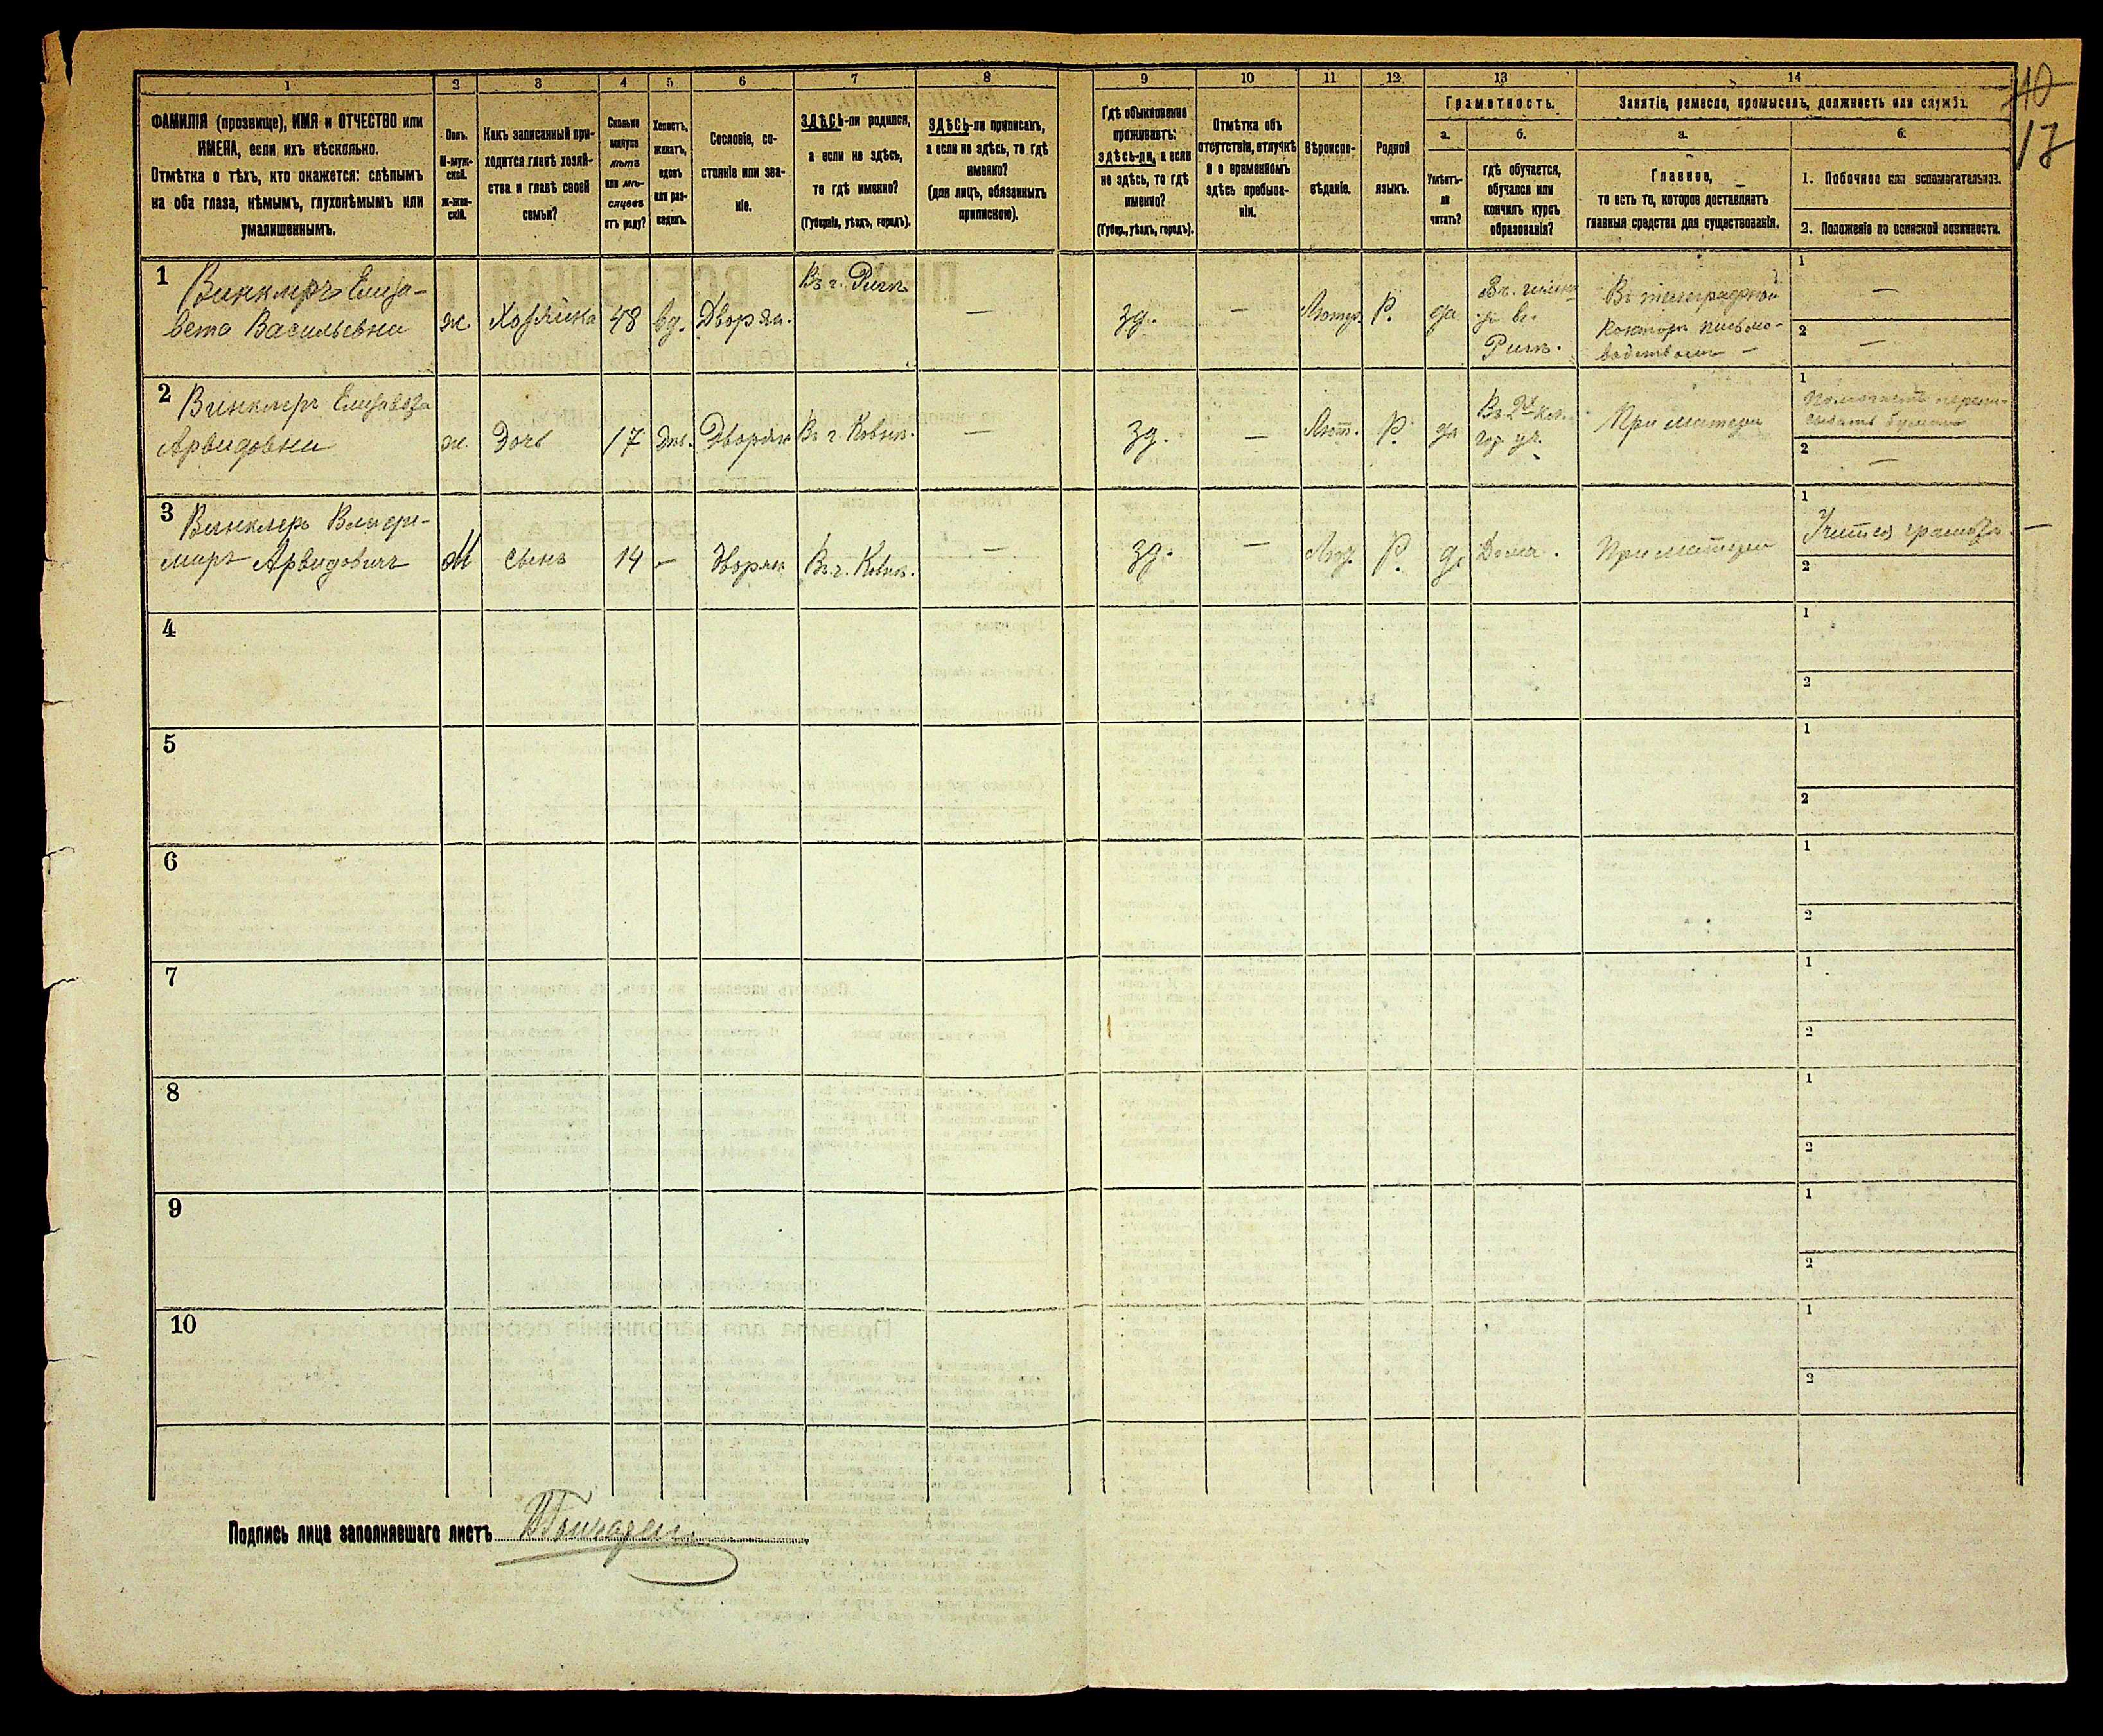 1 2 3 4 5 6 7 8 9 10 11 12 13 14
10
17
ФАМИЛІЯ (прозвище), ИМЯ и ОТЧЕСТВО или
ИМЕНА, если ихъ нѣсколько.
Отмѣтка о тѣхъ, кто окажется: слѣпымъ
на оба глаза, нѣмымъ, глухонѣмымъ или
умалишеннымъ.
Полъ.
М-муж-
ской.
Ж-жен-
скій.
Какъ записанный при-
ходится главѣ хозяй-
ства и главѣ своей
семьи?
Сколько
минуло
лѣтъ
или мѣ-
сяцевъ
отъ роду?
Холостъ,
женатъ,
вдовъ
или раз-
веденъ.
Сословіе, со-
стояніе или зва-
ніе.
ЗДѢСЬ-ли родился,
а если не здѣсь,
то гдѣ именно?
(Губернія, уѣздъ, городъ).
ЗДѢСЬ-ли приписанъ,
а если не здѣсь, то гдѣ
именно?
(для лицъ, обязанныхъ
припискою).
Гдѣ обыкновенно
проживаетъ:
здѣсь-ли, а если
не здѣсь, то гдѣ
именно?
(Губер., уѣздъ, городъ).
Отмѣтка объ
отсутствіи, отлучкѣ
и о временномъ
здѣсь пребыва-
ніи.
Вѣроиспо-
вѣданіе.
Родной
языкъ.
Грамотность.
а.
Умѣетъ-
ли
читать?
б.
гдѣ обучается,
обучался или
кончилъ курсъ
образованія?
Занятіе, ремесло, промыселъ, должность или служба.
а.
Главное,
то есть то, которое доставляетъ
главныя средства для существованія.
б.
1. Побочное или вспомогательное.
2. Положеніе по воинской повинности.
1
Винклеръ Елиза-
вета Васильевна
ж. Хозяйка 48 вд. Дворян.
Въ г. Ригѣ
—
зд. — Лютр. Р. да
въ
Ригѣ.
Въ телеграфной
конторѣ письмо-
водствомъ —
1 —
2 —
2
Винклеръ Елизавета
Арвидовна
ж. Дочь 17 Дѣв. Дворян Въ г. Ковнѣ. —
зд. — Лют. Р. да
гор. уч.
При матери
1
2 —
3
Винклеръ Влади-
миръ Арвидовичъ
М сынъ 14 — Дворян Въ г. Ковнѣ. —
зд. — Лют. Р. да Дома. При матери
1 Учится грамотѣ. —
2
4
1
2
5
1
2
6
1
2
7
1
2
8
1
2
9
1
2
10
1
2
Подпись лица заполнявшаго листъ